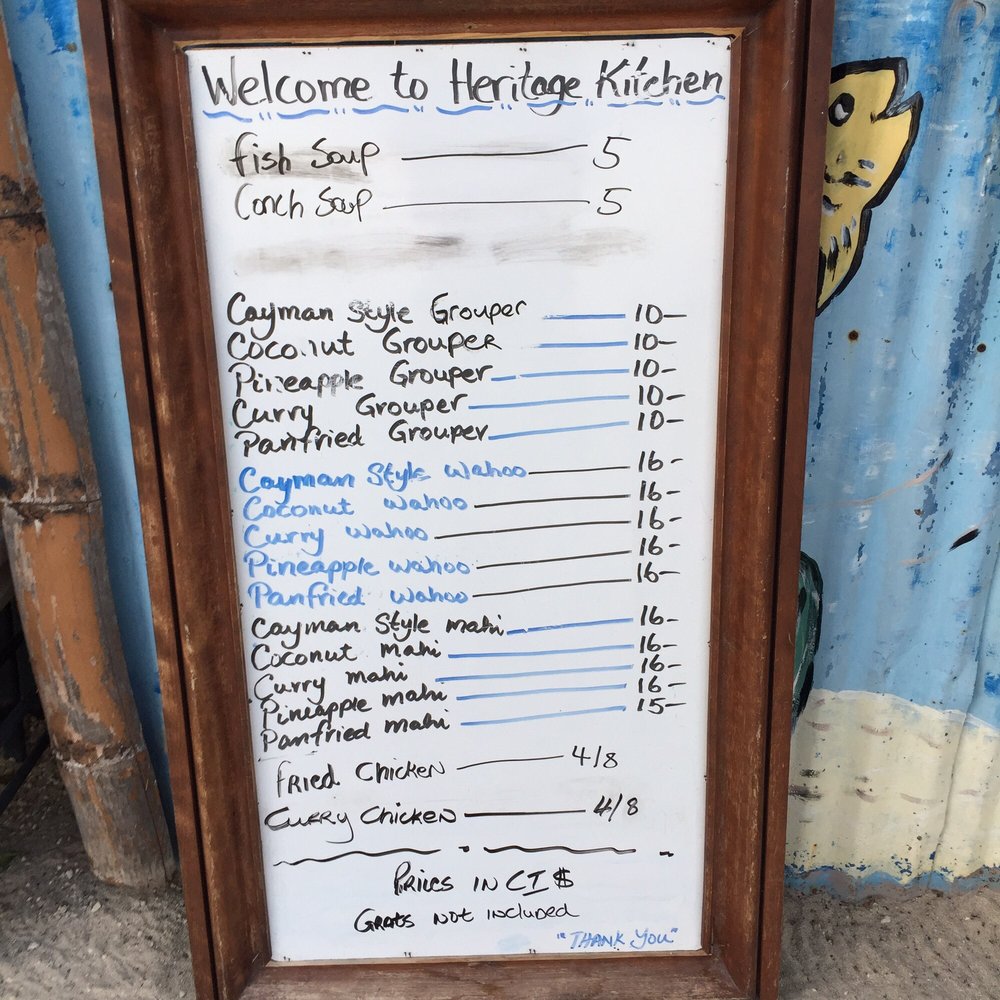 Welcome to Heritage Kitchen
fish Soup 5
Conch Soup 5
Cayman Style Grouper 10-
Coconut Grouper 10-
Pineapple Grouper 10-
Curry Grouper 10-
Panfried Grouper 10-
Cayman Style Wahoo 16-
Coconut Wahoo 16-
Curry Wahoo 16-
Pineapple Wahoo 16-
Panfried Wahoo 16-
Cayman Style mahi 16-
Coconut mahi 16-
Curry mahi 16-
Pineapple mahi 16-
Panfried mahi 15-
fried Chicken 4/8
Curry Chicken 4/8
Prices in CI $
Grats not included
"Thank You"